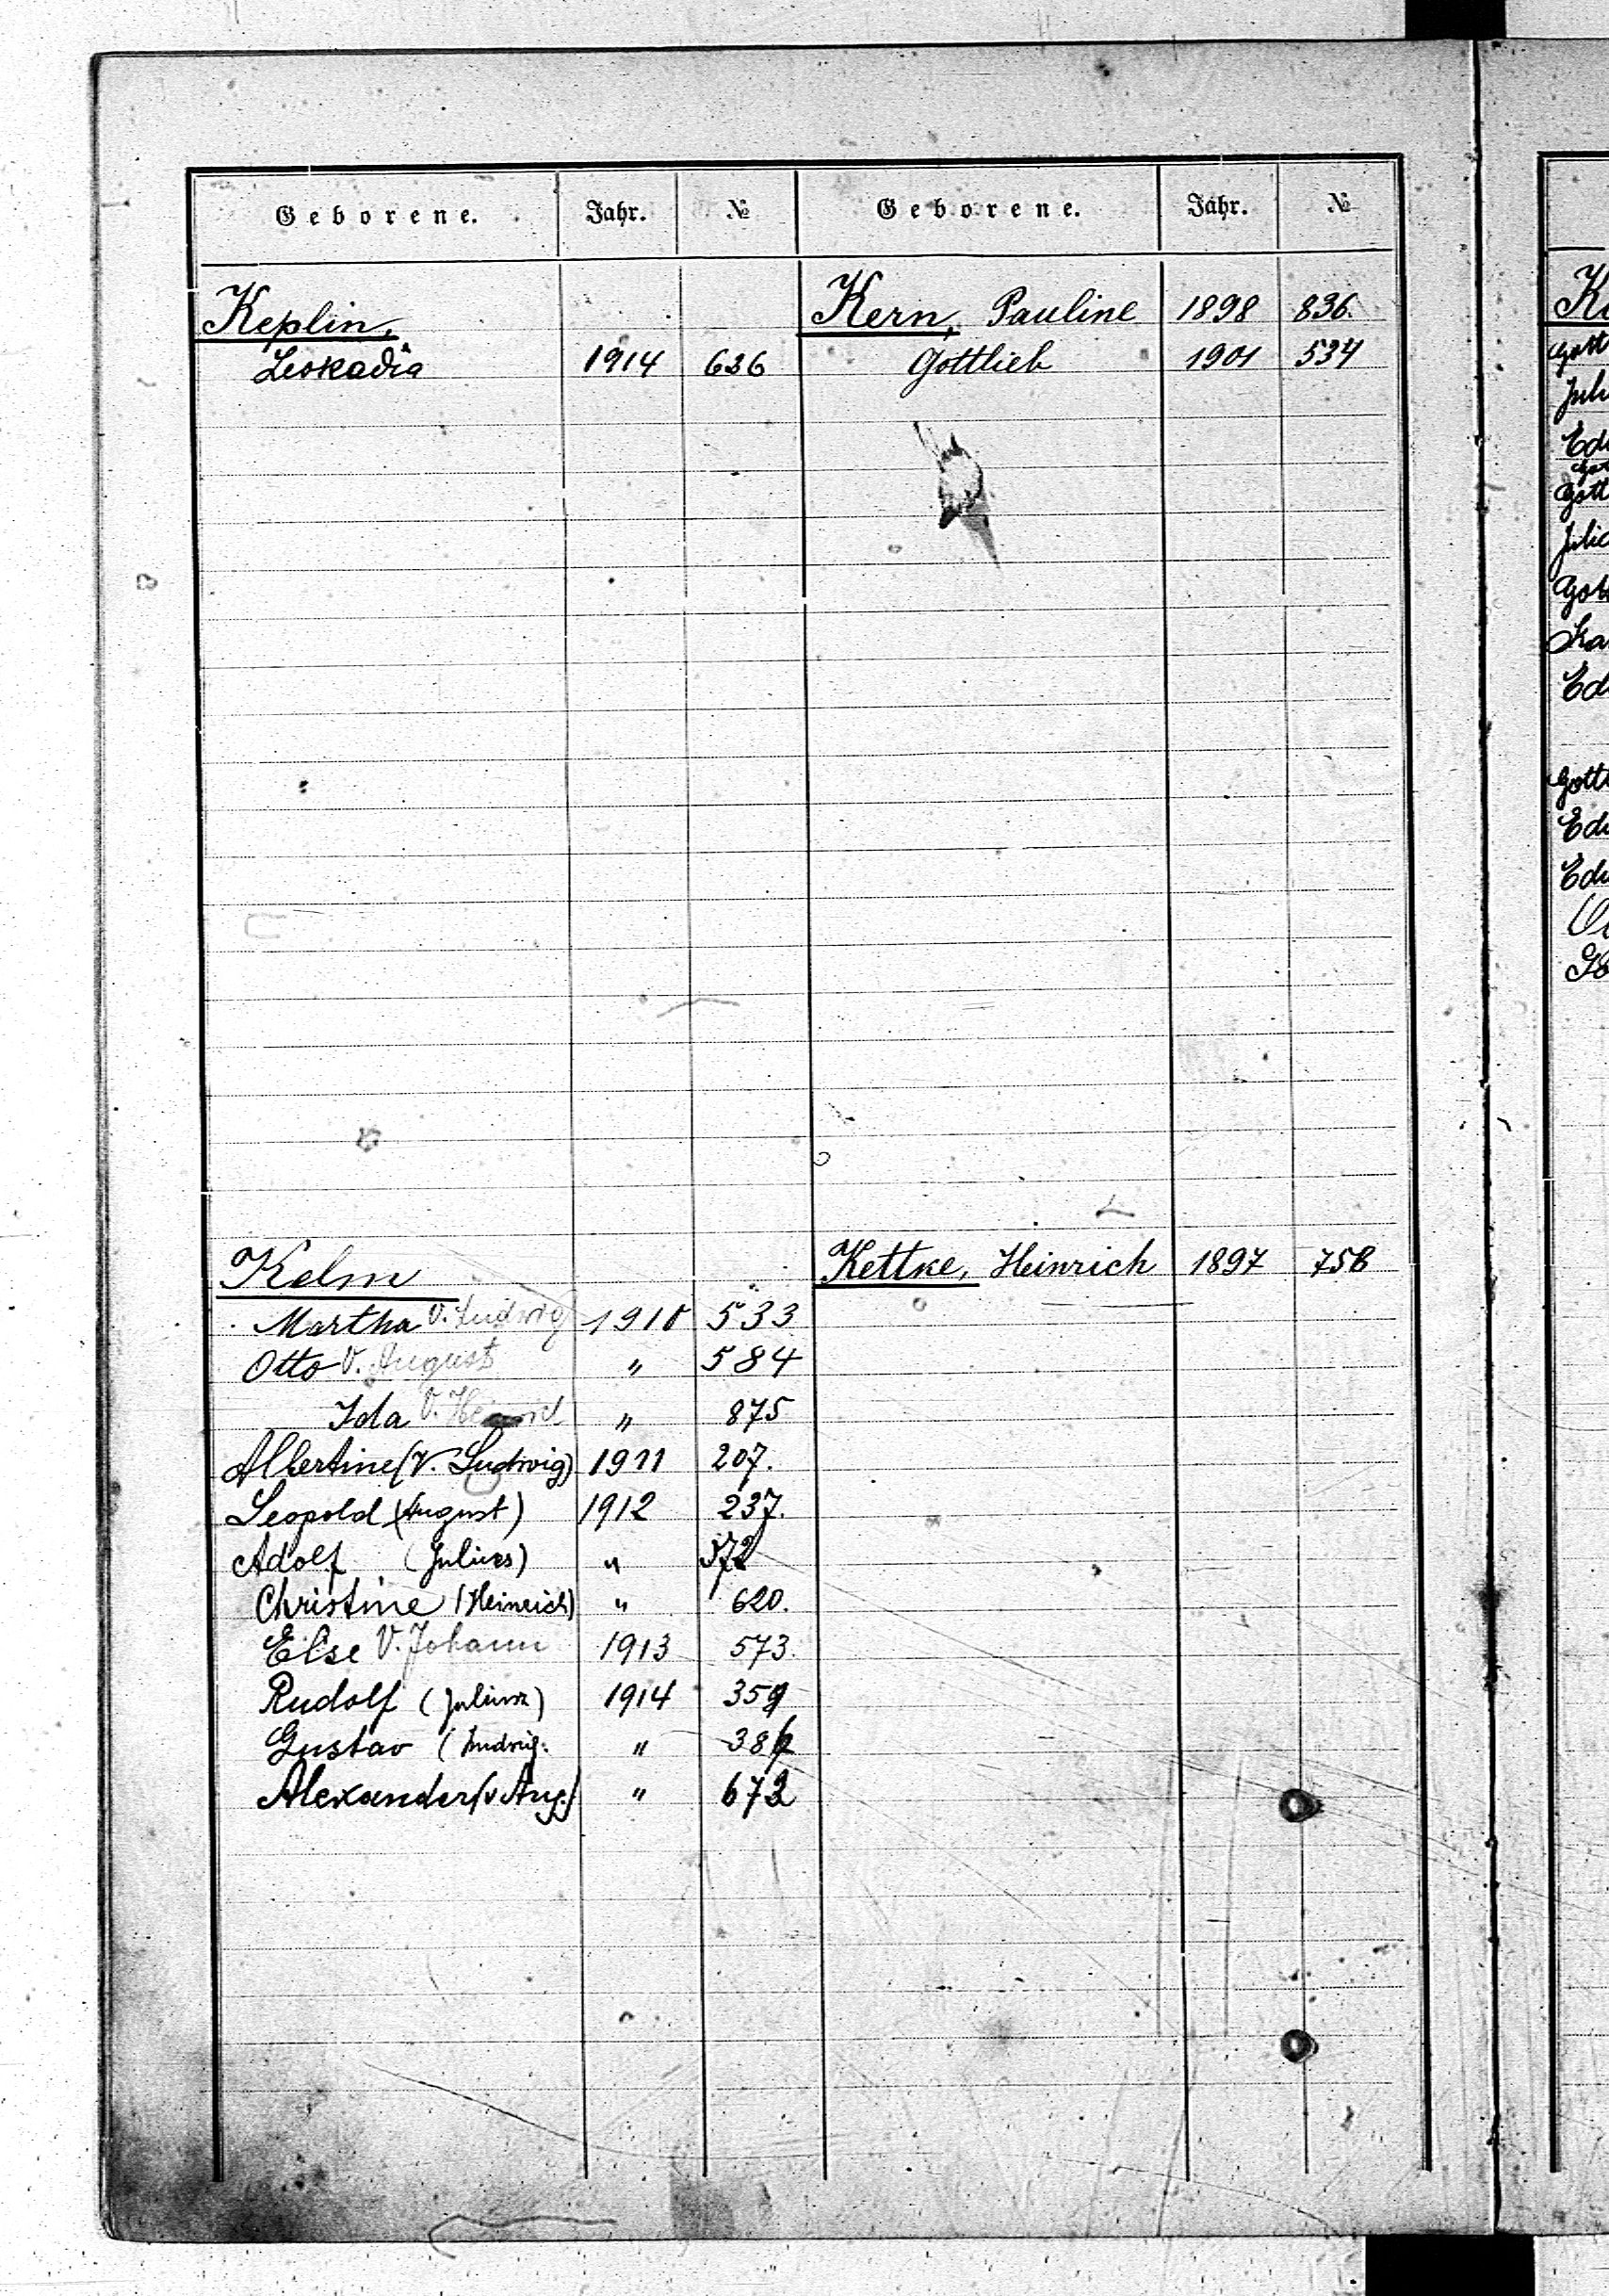 Geborene. Jahr. №
Keplin,
Leokadia 1914 636
Kelm
Martha V. Ludwig 1910 533
Otto V. August " 584
Ida V. " 875
Albertine (V. Ludwig) 1911 207.
Leopold (August) 1912 237.
Adolf (Julius) " 572
Christine (Heinrich) " 620.
Else V. Johann 1913 573.
Rudolf (Julius) 1914 359
Gustav (Ludwig. "
Alexander (v Aug.) " 672
Geborene. Jahr. №
Kern, Pauline 1898 836.
Gottlieb 1901 534
Kettke, Heinrich 1897 756